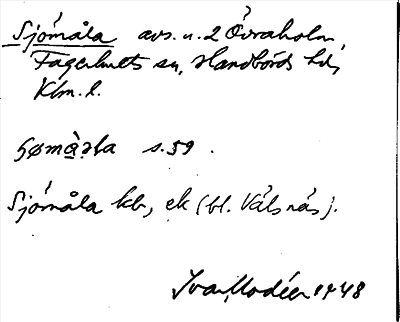 Sjömåla avs. u. 2 Övraholm
Fagerhults sn, Handbörds hd,
Klm. l.
s. 59.
Sjömåla kb, ek (bl. Välsnäs).
Ivar Modéer 1948